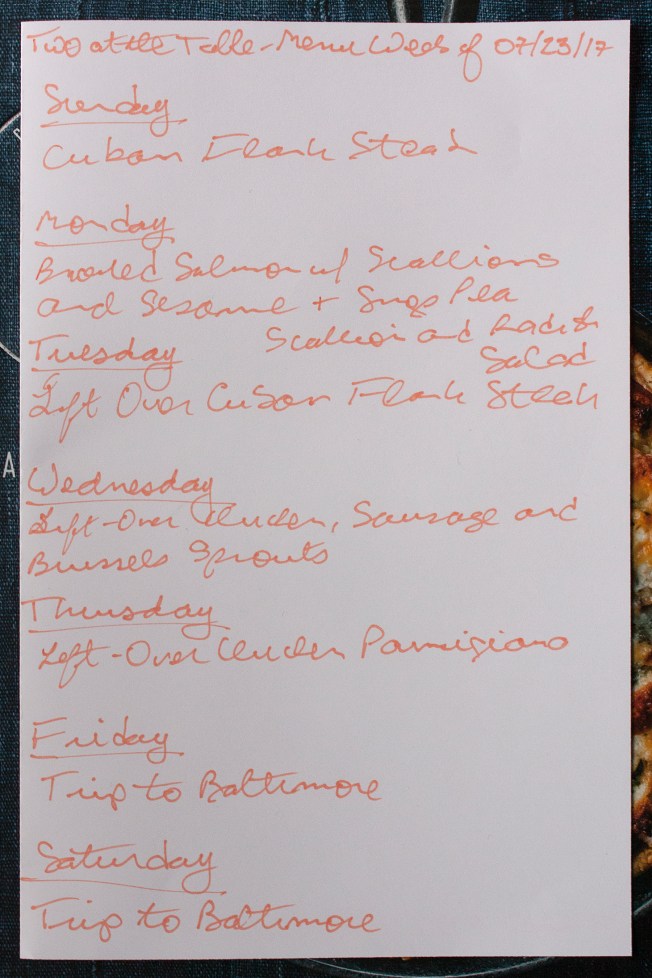 Two at the Table - Menu Week of 07/23/17
Sunday
Cuban Flank Steak
Monday
Broiled Salmon w/ Scallions
and Sesame + Snap Pea
Scallion and Radish
Salad
Tuesday
Left Over Cuban Flank Steak
Wednesday
Left-Over Chicken, Sausage and
Brussels Sprouts
Thursday
Left-Over Chicken Parmigiano
Friday
Trip to Baltimore
Saturday
Trip to Baltimore
A